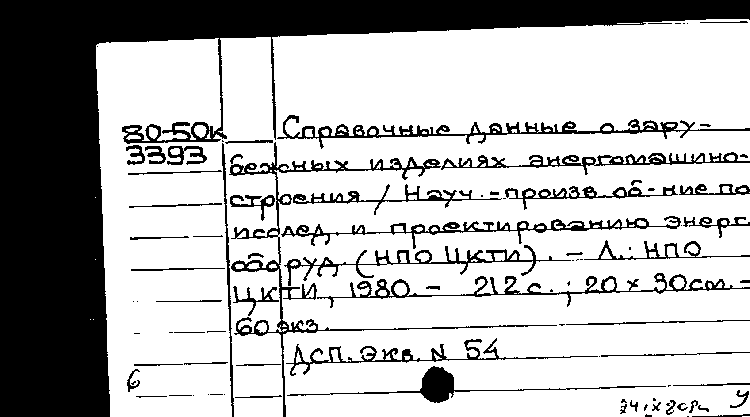 80-50к Справочные данные о зару-
3393 бежных изделиях энергомашино-
строения / Науч.-произв. об-ние по
исслед. и проектированию энерг.
оборуд. (НПО ЦКТИ). - Л.: НПО
ЦКТИ, 1980. - 212 с.; 20 × 30 см. -
60 экз.
ДСП. Экз. N 54
6